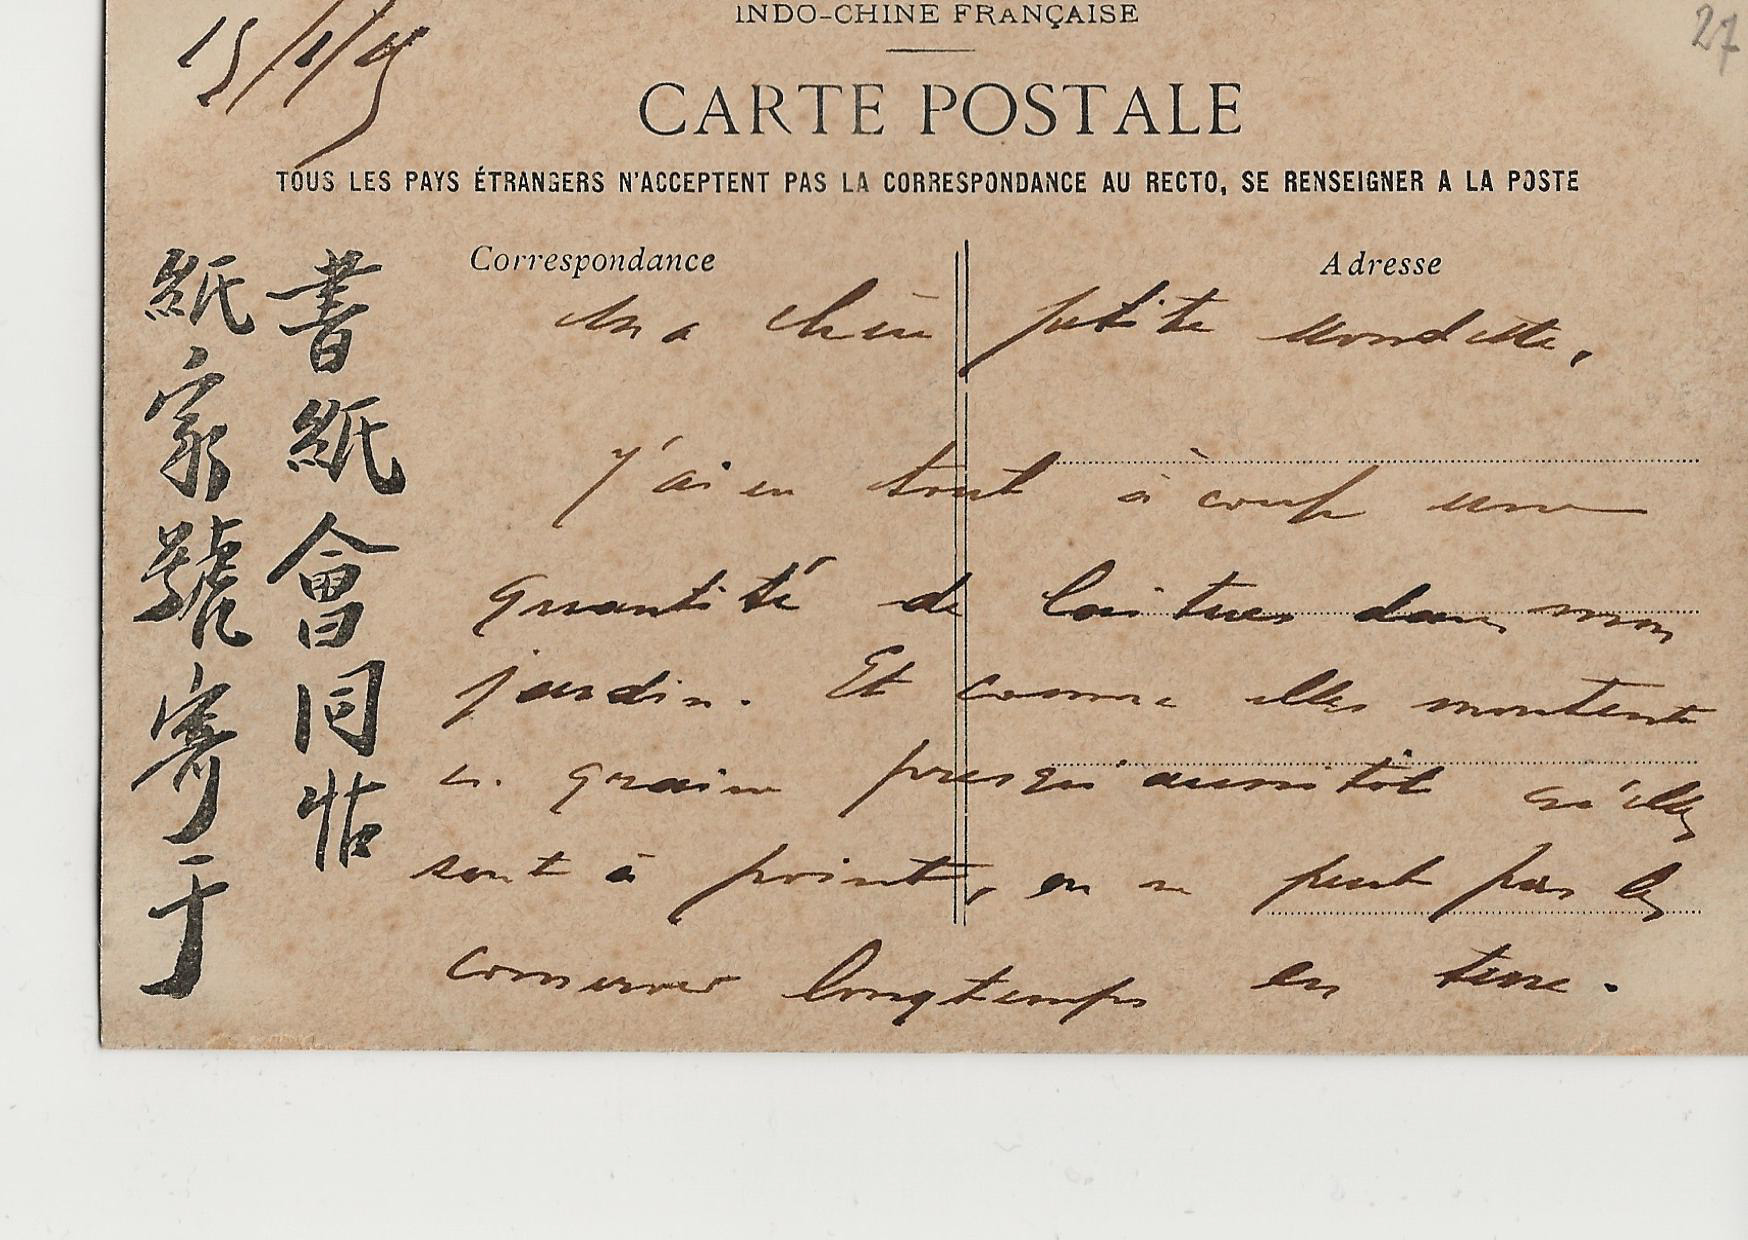 INDO-CHINE FRANÇAISE
27
15/1/9
CARTE POSTALE
TOUS LES PAYS ÉTRANGERS N'ACCEPTENT PAS LA CORRESPONDANCE AU RECTO, SE RENSEIGNER A LA POSTE
Correspondance
Adresse
Ma chère petite
J'ai eu tout à coup une
quantité de laitues dans mon
jardin. Et comme elles montent
en graine presqu'aussitôt qu'elles
sont à point, on ne peut pas les
conserver longtemps en terre.
書紙會同帖
紙家號寄于